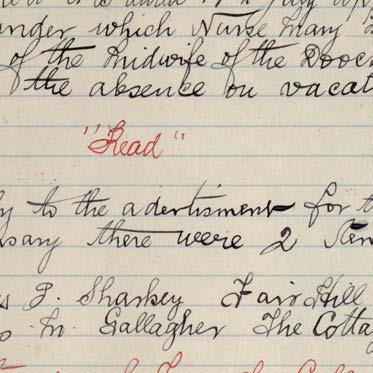 under which Nurse Mary
of the Midwife of the
the absence on vacat
"Read"
y to the adertisment for t
ssary there were 2 Ten
s J. Sharkey Fair Hill
s M. Gallagher The Cotta